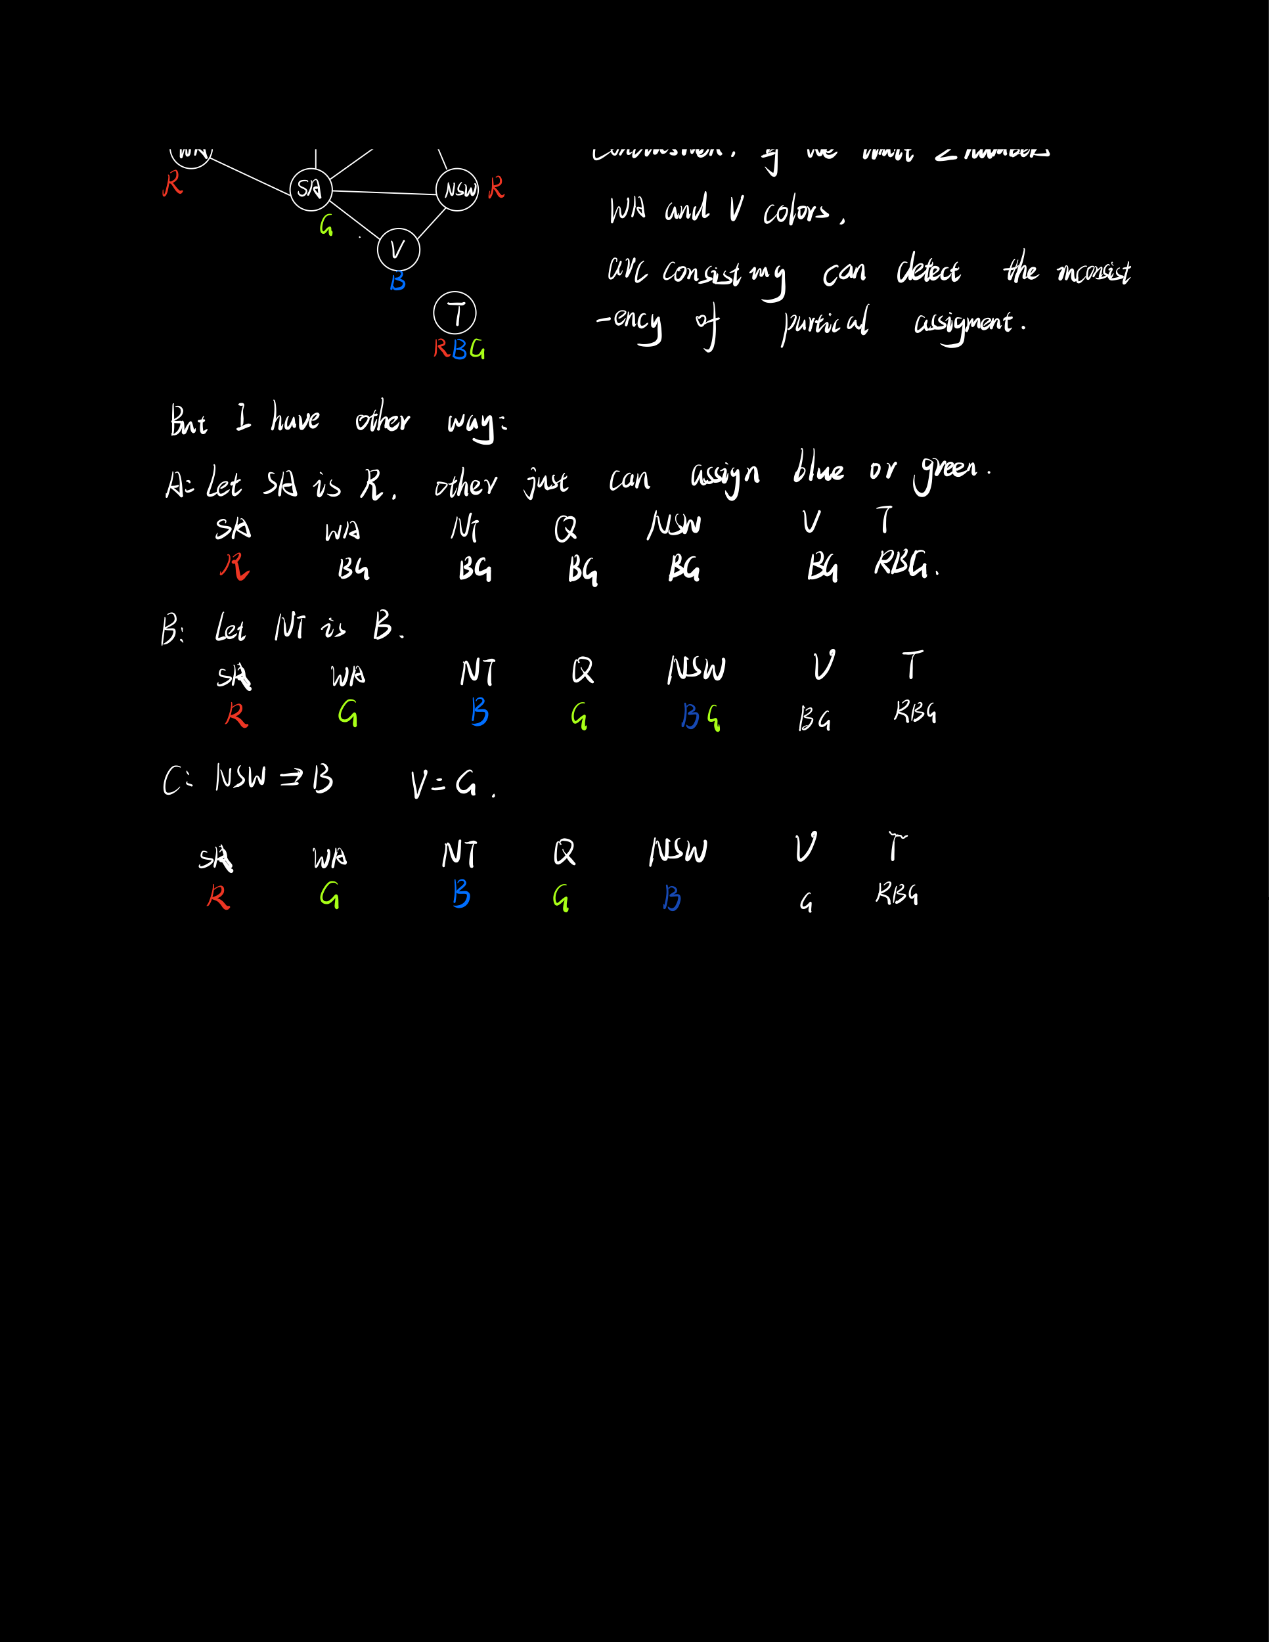 WA
R
SA
NSW R
G
V
B
T
RBG
Conclusion, if we limit 2 numbers
WA and V colors.
arc consisting can detect the inconsist
-ency of partical assigment.
But I have other way:
A: Let SA is R. other just can assign blue or green.
SA WA NT Q NSW V T
R BG BG BG BG BG RBG.
B: Let NT is B.
SA WA NT Q NSW V T
R G B G BG BG RBG
C: NSW ⇒ B V = G.
SA WA NT Q NSW V T
R G B G B G RBG